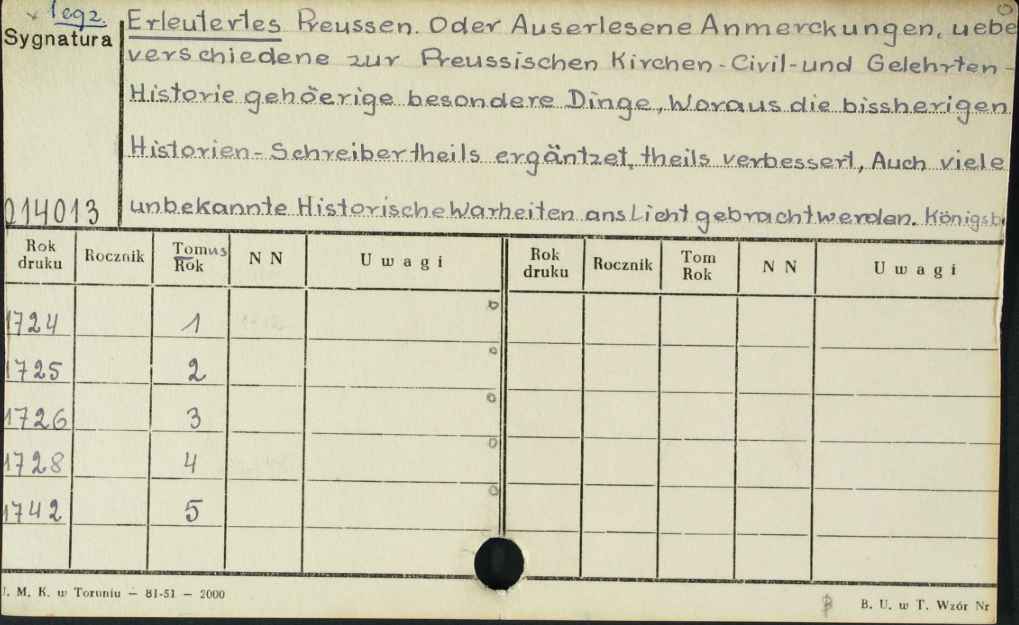 1 egz.
Sygnatura
Erleutertes Preussen. Oder Auserlesene Anmerckungen, uebe
verschiedene zur Preussischen Kirchen-Civil-und Gelehrten-
Historie gehöerige besondere Dinge, Woraus die bissherigen
Historien-Schreiber theils ergäntzet, theils verbessert, Auch viele
014013 unbekannte Historische Warheiten ans Licht gebracht werden. Königsb
Rok druku Rocznik Tomus Rok N N Uwagi Rok druku Rocznik Tom Rok N N Uwagi
1724 1
1725 2
1726 3
1728 4
1742 5
. M. K. w Toruniu — 81-51 — 2000
B. U. w T. Wzór Nr